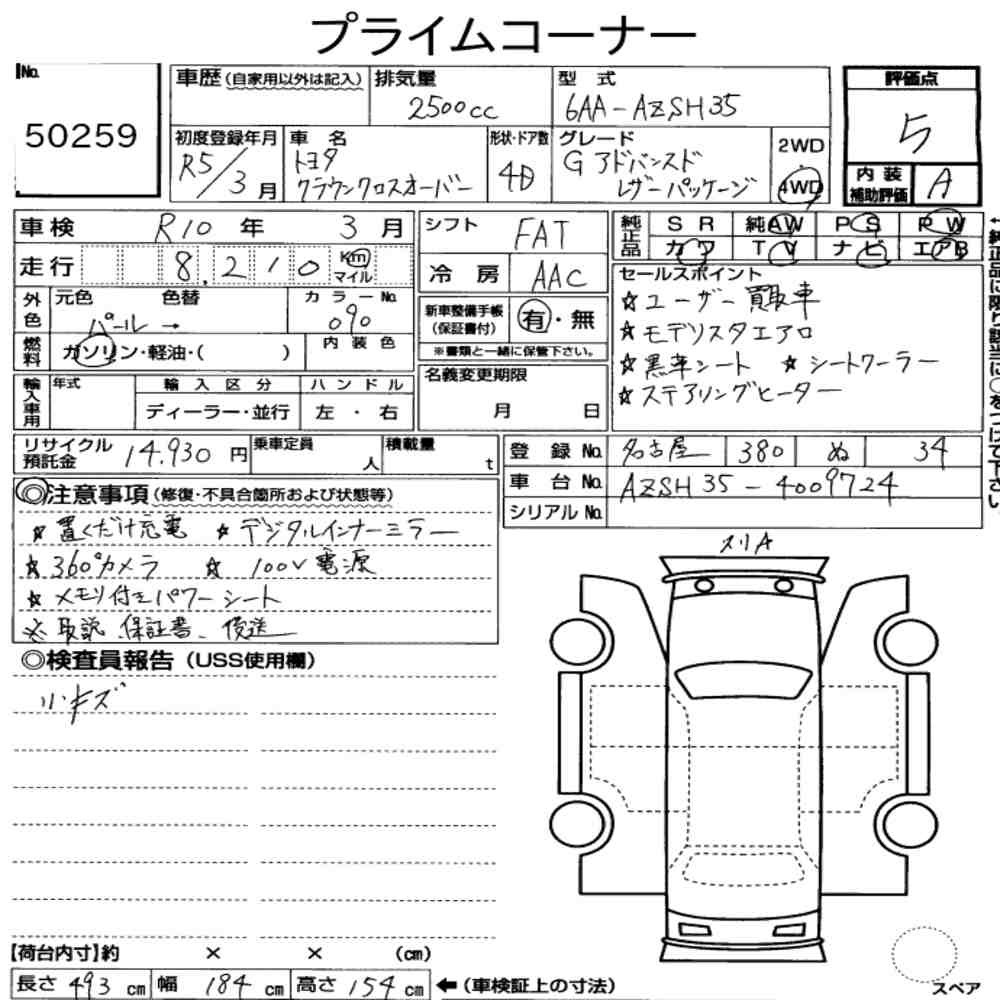 プライムコーナー
No.
50259
車歴 (自家用以外は記入)
排気量
2500cc
型 式
6AA-AZSH35
評価点
5
内 装
補助評価
A
初度登録年月
R5/3月
車 名
トヨタ
クラウンクロスオーバー
形状・ドア数
4D
グレード
G アドバンスド
レザーパッケージ
2WD
4WD
車検 R10 年 3 月
走行 8,210 Km
マイル
シフト FAT
冷 房 AAC
純正品
S R 純AW P S P W
カワ T V ナビ エアB
←純正品に限り該当に○をつけて下さい
外色 元色 色替 カラーNo.
パール → 090
燃料 ガソリン・軽油・( ) 内 装 色
新車整備手帳
(保証書付)
有・無
※書類と一緒に保管下さい。
セールスポイント
☆ユーザー買取車
☆モデリスタエアロ
☆黒革シート ☆シートクーラー
☆ステアリングヒーター
輸入車用 年式 輸 入 区 分 ハ ン ド ル
ディーラー・並行 左 ・ 右
名義変更期限
月 日
リサイクル
預託金 14.930 円
乗車定員 人
積載量 t
登 録 No. 名古屋 380 ぬ 34
車 台 No. AZSH35-4009724
シリアル No.
◎注意事項 (修復・不具合箇所および状態等)
☆置くだけ充電 ☆デジタルインナーミラー
☆360°カメラ ☆100V電源
☆メモリ付きパワーシート
※取説、保証書、後送
スリA
◎検査員報告 (USS使用欄)
小キズ
【荷台内寸】約 × × (cm)
長さ 493 cm 幅 184 cm 高さ 154 cm ←(車検証上の寸法)
スペア